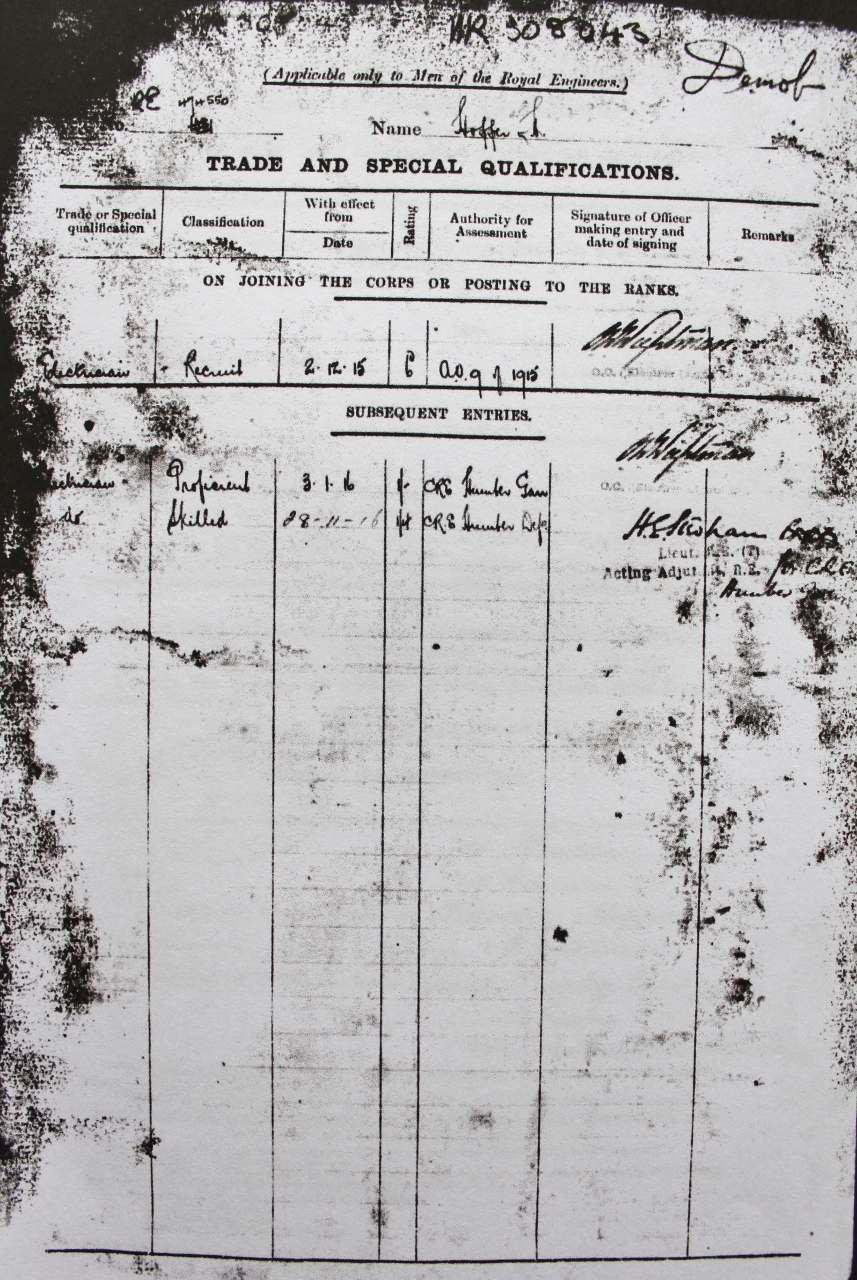 WR 308043
(Applicable only to Men of the Royal Engineers.)
Demob
RE 474550
Name Hoffer
TRADE AND SPECIAL QUALIFICATIONS.
Trade or Special qualification
Classification
With effect from
Date
Rating
Authority for Assessment
Signature of Officer making entry and date of signing
Remarks
ON JOINING THE CORPS OR POSTING TO THE RANKS.
Electrician Recruit 2.12.15 6 A.O. 9 of 1915
SUBSEQUENT ENTRIES.
Proficient 3.1.16 CRE Humber
do. Skilled 28-11-16 CRE Humber
Lieut. R.E. (T)
Acting Adjut. R.E. for C.R.E.
Humber